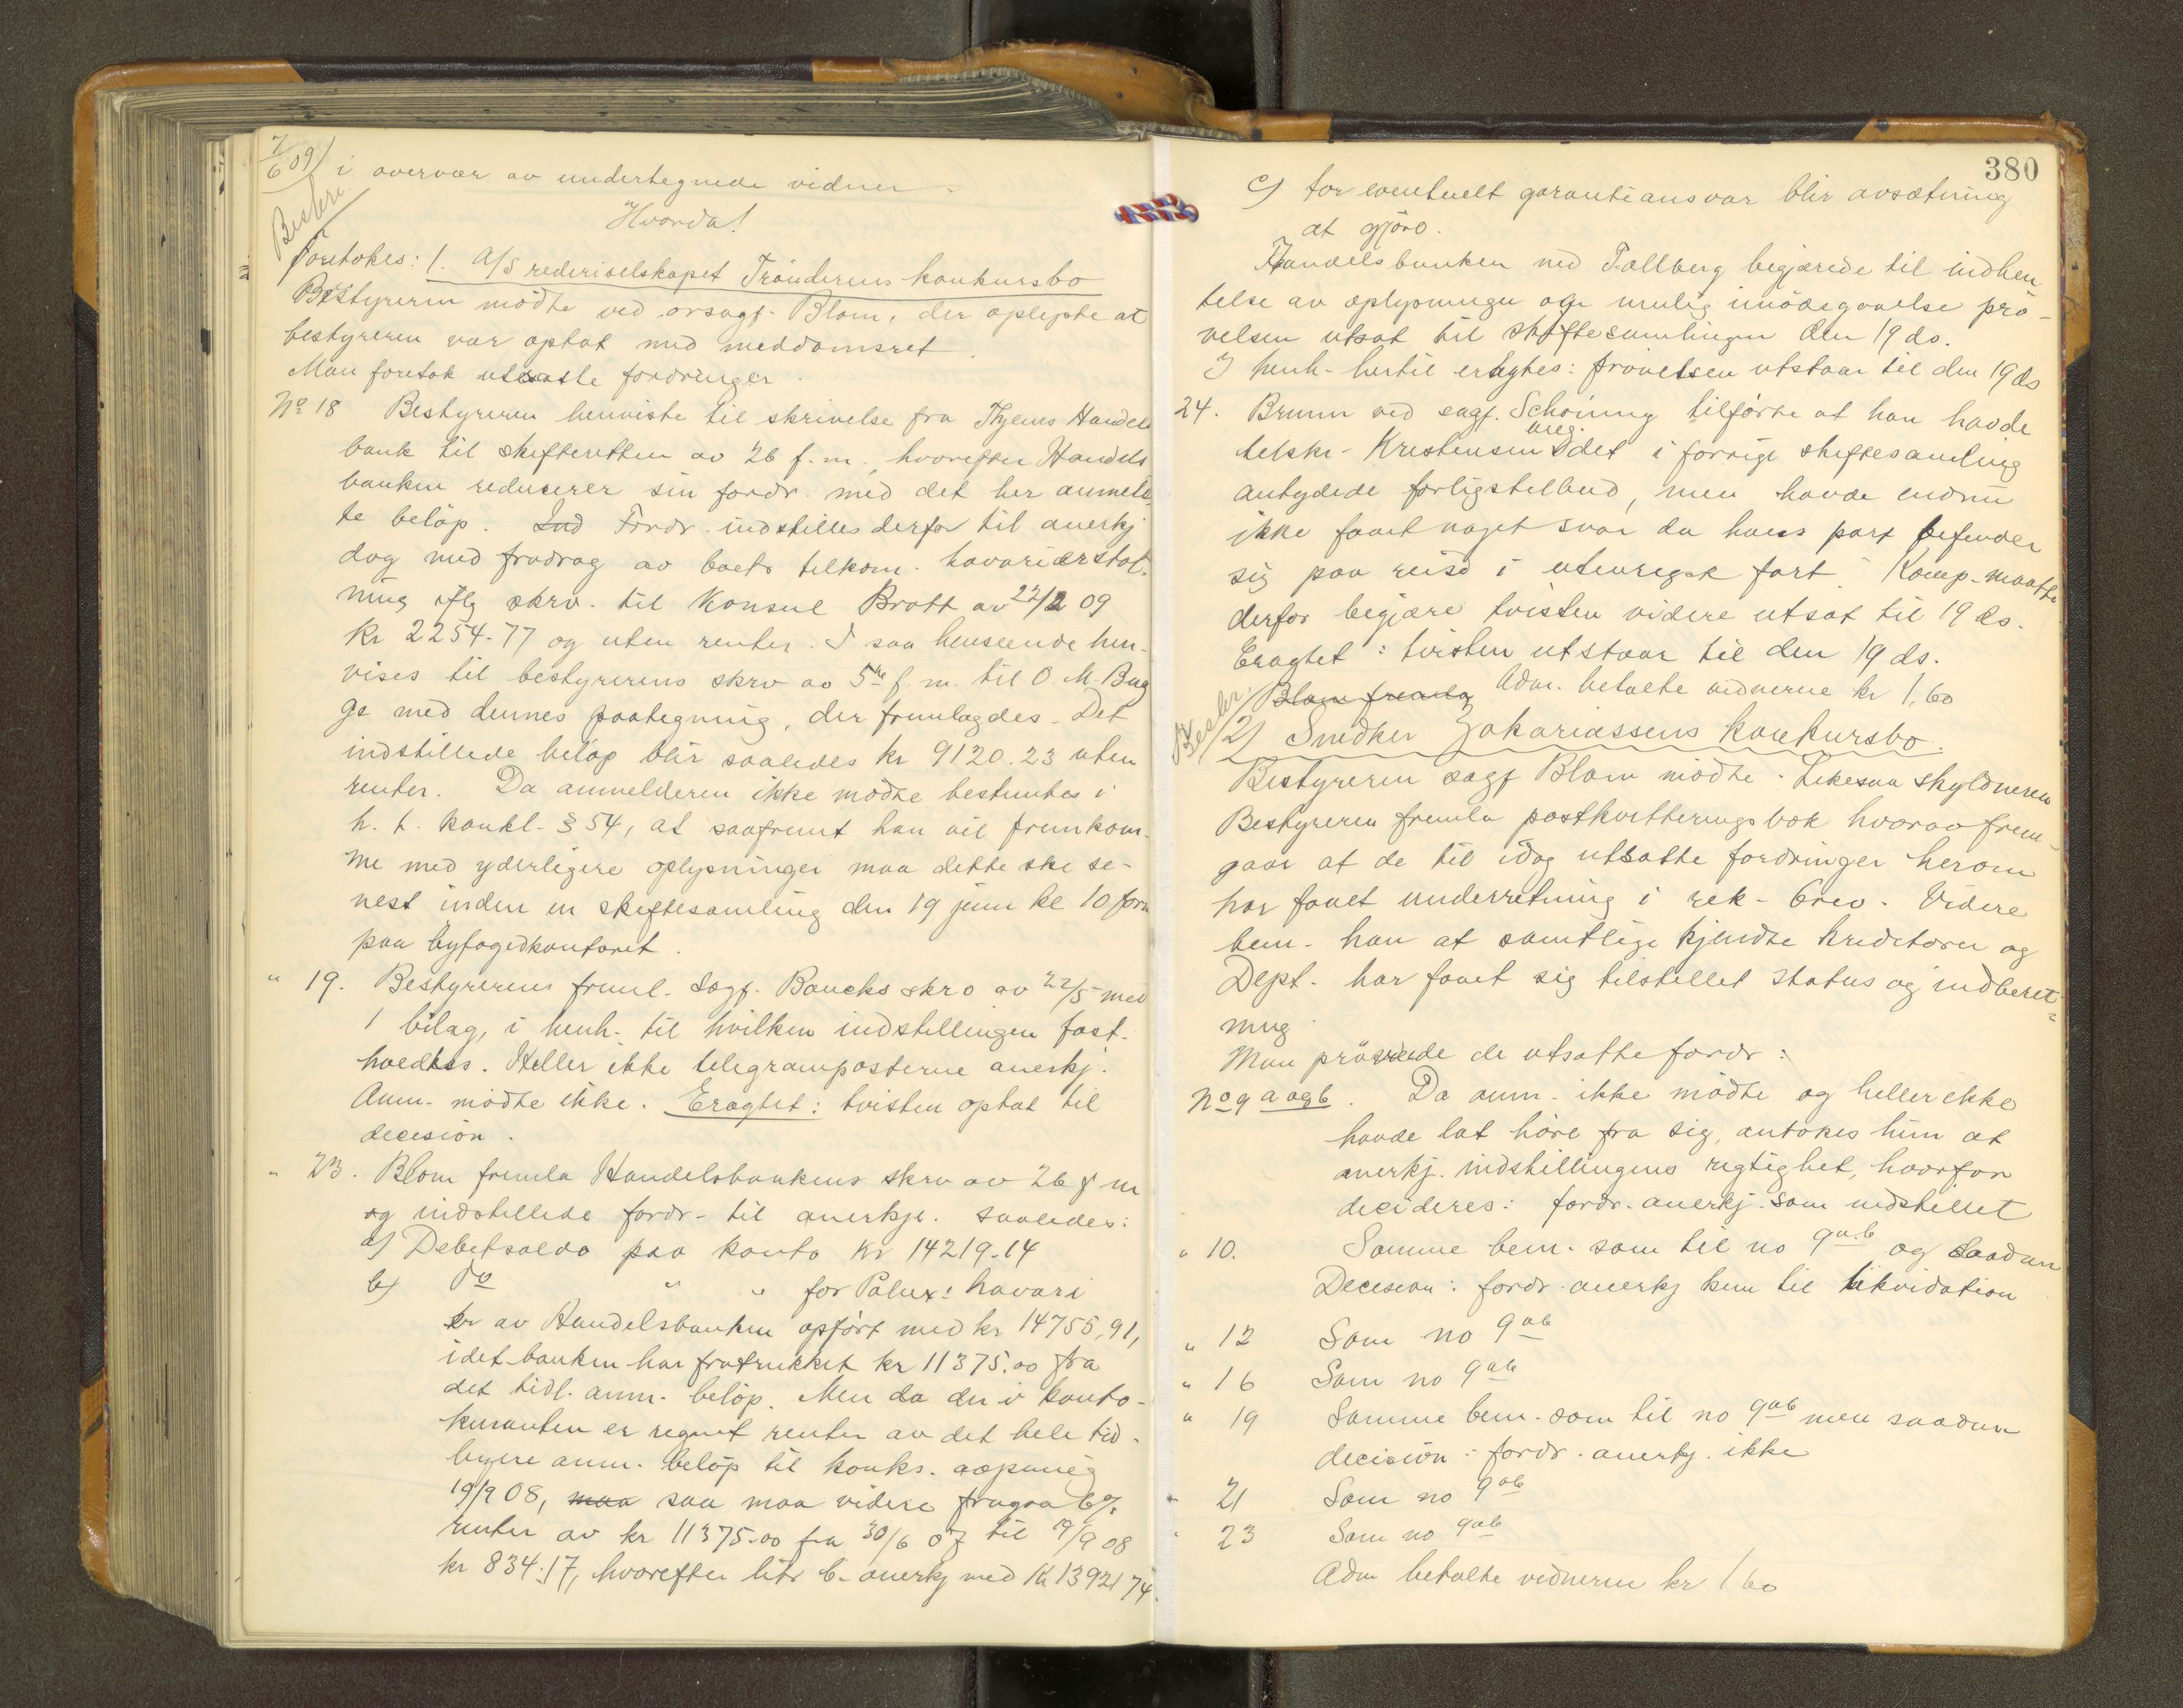 7/6 09) i overvær av undertegnede vidner -
Beskr.
Hvorda!
Foretokes: 1. A/S rederiselskapet Trönderens konkursbo
Bestyreren mödte ved orsagf. Blom, der oplyste at
bestyreren var optat med meddomsret.
Man foretok utsatte fordringer.
No 18 Bestyreren henviste til skrivelse fra Thjems Handels
bank til skifteretten av 26 f.m., hvorefter Handels
banken reducerer sin fordr. med det her anmeld
te belöp. Ind Fordr. indstilles derfor til anerkj
dog med fradrag av boets tilkom. havarierstat-
ning iflg skrv. til Konsul Bratt av 22/2 09
kr 2254.77 og uten renter. I saa henseende hen-
vises til bestyrerens skrv av 5te f.m. til O. M. Bug
ge med dennes paategning, der fremlagdes. Det
indstillede belöp blir saaledes kr 9120.23 uten
renter. Da anmelderen ikke mödte bestemtes i
h. t. konkl. § 54, at saafremt han vil fremkom-
me med yderligere oplysninger maa dette ske se-
nest inden en skiftesamling den 19 juni kl 10 form
paa byfogedkontoret.
" 19. Bestyrerens freml. Sagf. Boucks skrv av 22/5 med
1 bilag, i henh. til hvilken indstillingen fast-
holdtes. Heller ikke telegramposterne anerkj.
Anm. mödte ikke. Eragtet: tvisten optat til
decision.
" 23. Blom fremla Handelsbankens skrv av 26 f m
og indstillede fordr. til anerkje. saaledes:
a) Debetsaldo paa konto Kr 14219.14
b) do " " for Palux: havari
er av Handelsbanken opfört med kr 14755,91,
idet banken har fratrukket kr 11375.00 fra
det tidl. anm. belöp. Men da der i konto-
kuranten er regnet renter av det hele tid-
ligere anm. belöp til konks. aapning
19/9 08, maa saa maa videre fragaa 6%
renter av kr 11375.00 fra 30/6 07 til 19/9 08
kr 834.17, hvorefter litr b. anerkj med Kr 13921 74.
380
c) for eventuelt garantiansvar blir avsætning
at gjöre.
Handelsbanken ved Tallberg begjærede til indhen
telse av oplysninger og mulig imödegaaelse prö-
velsen utsat til skiftesamlingen den 19 ds.
I henh. hertil eragtes: prövelsen utstaar til den 19 ds
24. Brunn ved sagf. Schöning tilförte at han havde
ang.
telskr. Kristensen det i forrige skiftesamling
antydede forligstilbud, men havde endnu
ikke faaet noget svar da hans part befinder
sig paa reise i utenrigsk fart. Komp. maatte
derfor begjære tvisten videre utsat til 19 ds.
Eragtet: tvisten utstaar til den 19 ds.
Blom fremla Adm. betalte vidnerne kr 1,60
Beskr.
2) Snedker Zakariassens konkursbo.
Bestyreren sagf Blom mödte. Likesaa skyldneren
Bestyreren fremla postkvitteringsbok hvorav frem-
gaar at de til idag utsatte fordringer herom
har faaet underretning i rek. brev. Videre
bem. han at samtlige kjendte kreditorer og
Dept. har faaet sig tilstillet status og indberet-
ning.
Man prövede de utsatte fordr:
No 9 a og b. Da anm. ikke mödte og heller ikke
havde lat höre fra sig, antokes him at
anerkj. indstillingens rigtighet, hvorfor
decideres: fordr. anerkj. som indstillet
" 10. Samme bem. som til no 9 a.b og saadan
Decision: fordr. anerkj kun til likvidation
" 12 Som no 9 ab
" 16 Som no 9 ab
" 19 Samme bem. som til no 9 ab men saadan
decision: fordr. anerkj. ikke
" 21 Som no 9 ab
" 23 Som no 9 ab
Adm betalte vidnerne kr 1 60